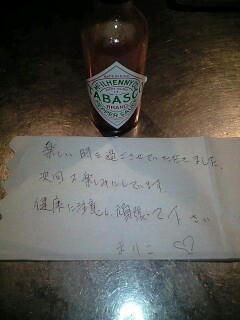 McILHENNY CO.
TABASCO
BRAND
PEPPER SAUCE
楽しい時を過ごさせていただきました。
次回も楽しみにしています。
健康に注意し、頑張って下さい
まりこ ♡